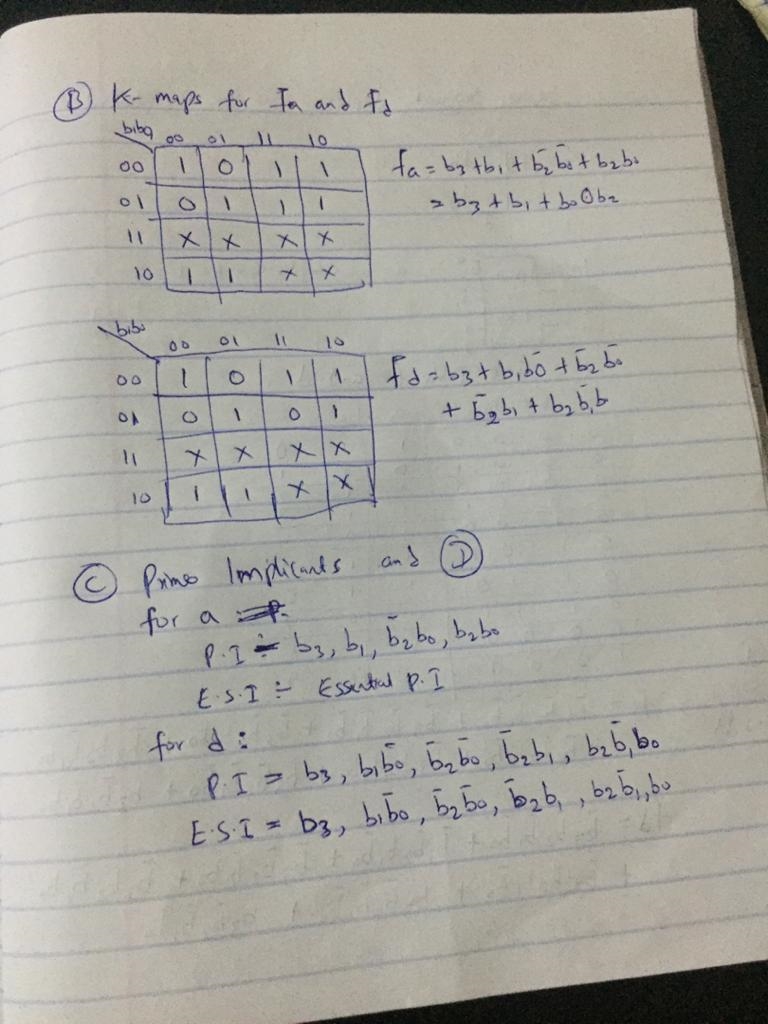 Ⓑ K-maps for Fa and Fd
b₁b₀ 00 01 11 10
00 1 0 1 1
01 0 1 1 1
11 x x x x
10 1 1 x x
fa = b₃ + b₁ + b̄₂ b̄₀ + b₂b₀
= b₃ + b₁ + b₀ʘb₂
b₁b₀
00 01 11 10
00 1 0 1 1
01 0 1 0 1
11 x x x x
10 1 1 x x
Fd = b₃ + b₁b̄₀ + b̄₂ b̄₀
+ b̄₂b₁ + b₂b̄₁b
Ⓒ Primes Implicants and Ⓓ
for a :
P.I ÷ b₃, b₁, b̄₂b₀, b₂b₀
E.S.I ÷ Essential P.I
for d :
P.I = b₃, b₁b̄₀, b̄₂b̄₀, b̄₂b₁, b₂b̄₁b₀
E.S.I = b₃, b₁b̄₀, b̄₂b̄₀, b̄₂b₁, b₂b̄₁,b₀